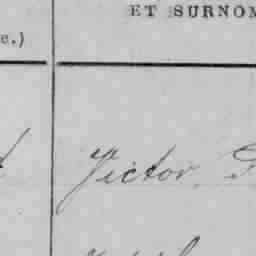 ET SURNOM
c.)
Victor